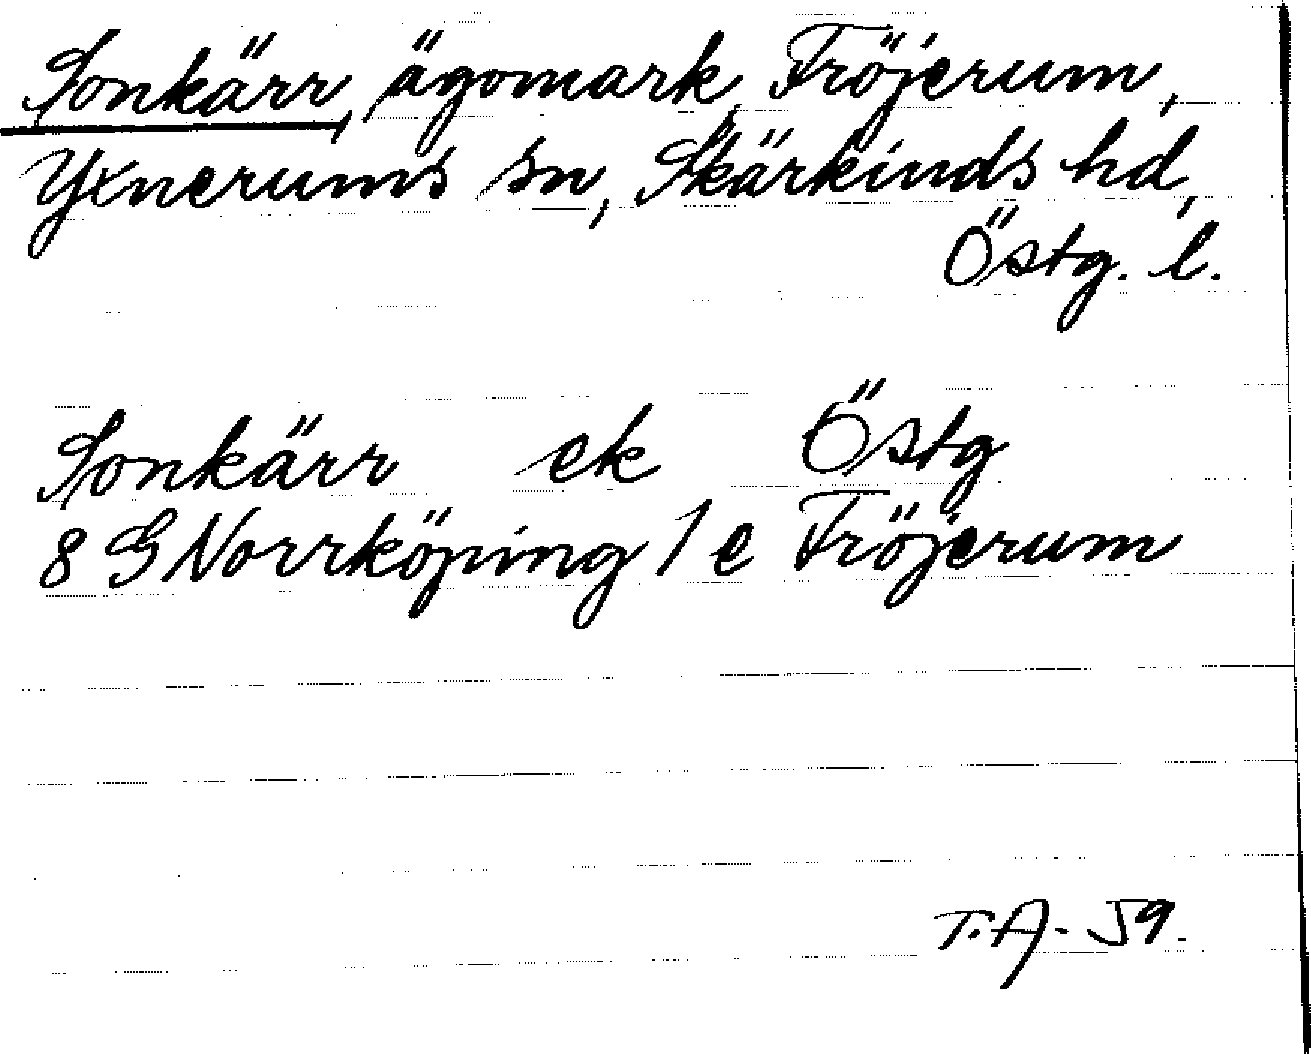 Sonkärr, ägomark, Fröjerum,
Yxnerums sn, Skärkinds hd,
Östg. l.
Sonkärr ek Östg
8 G Norrköping 1 e Fröjerum
T.A. 59.